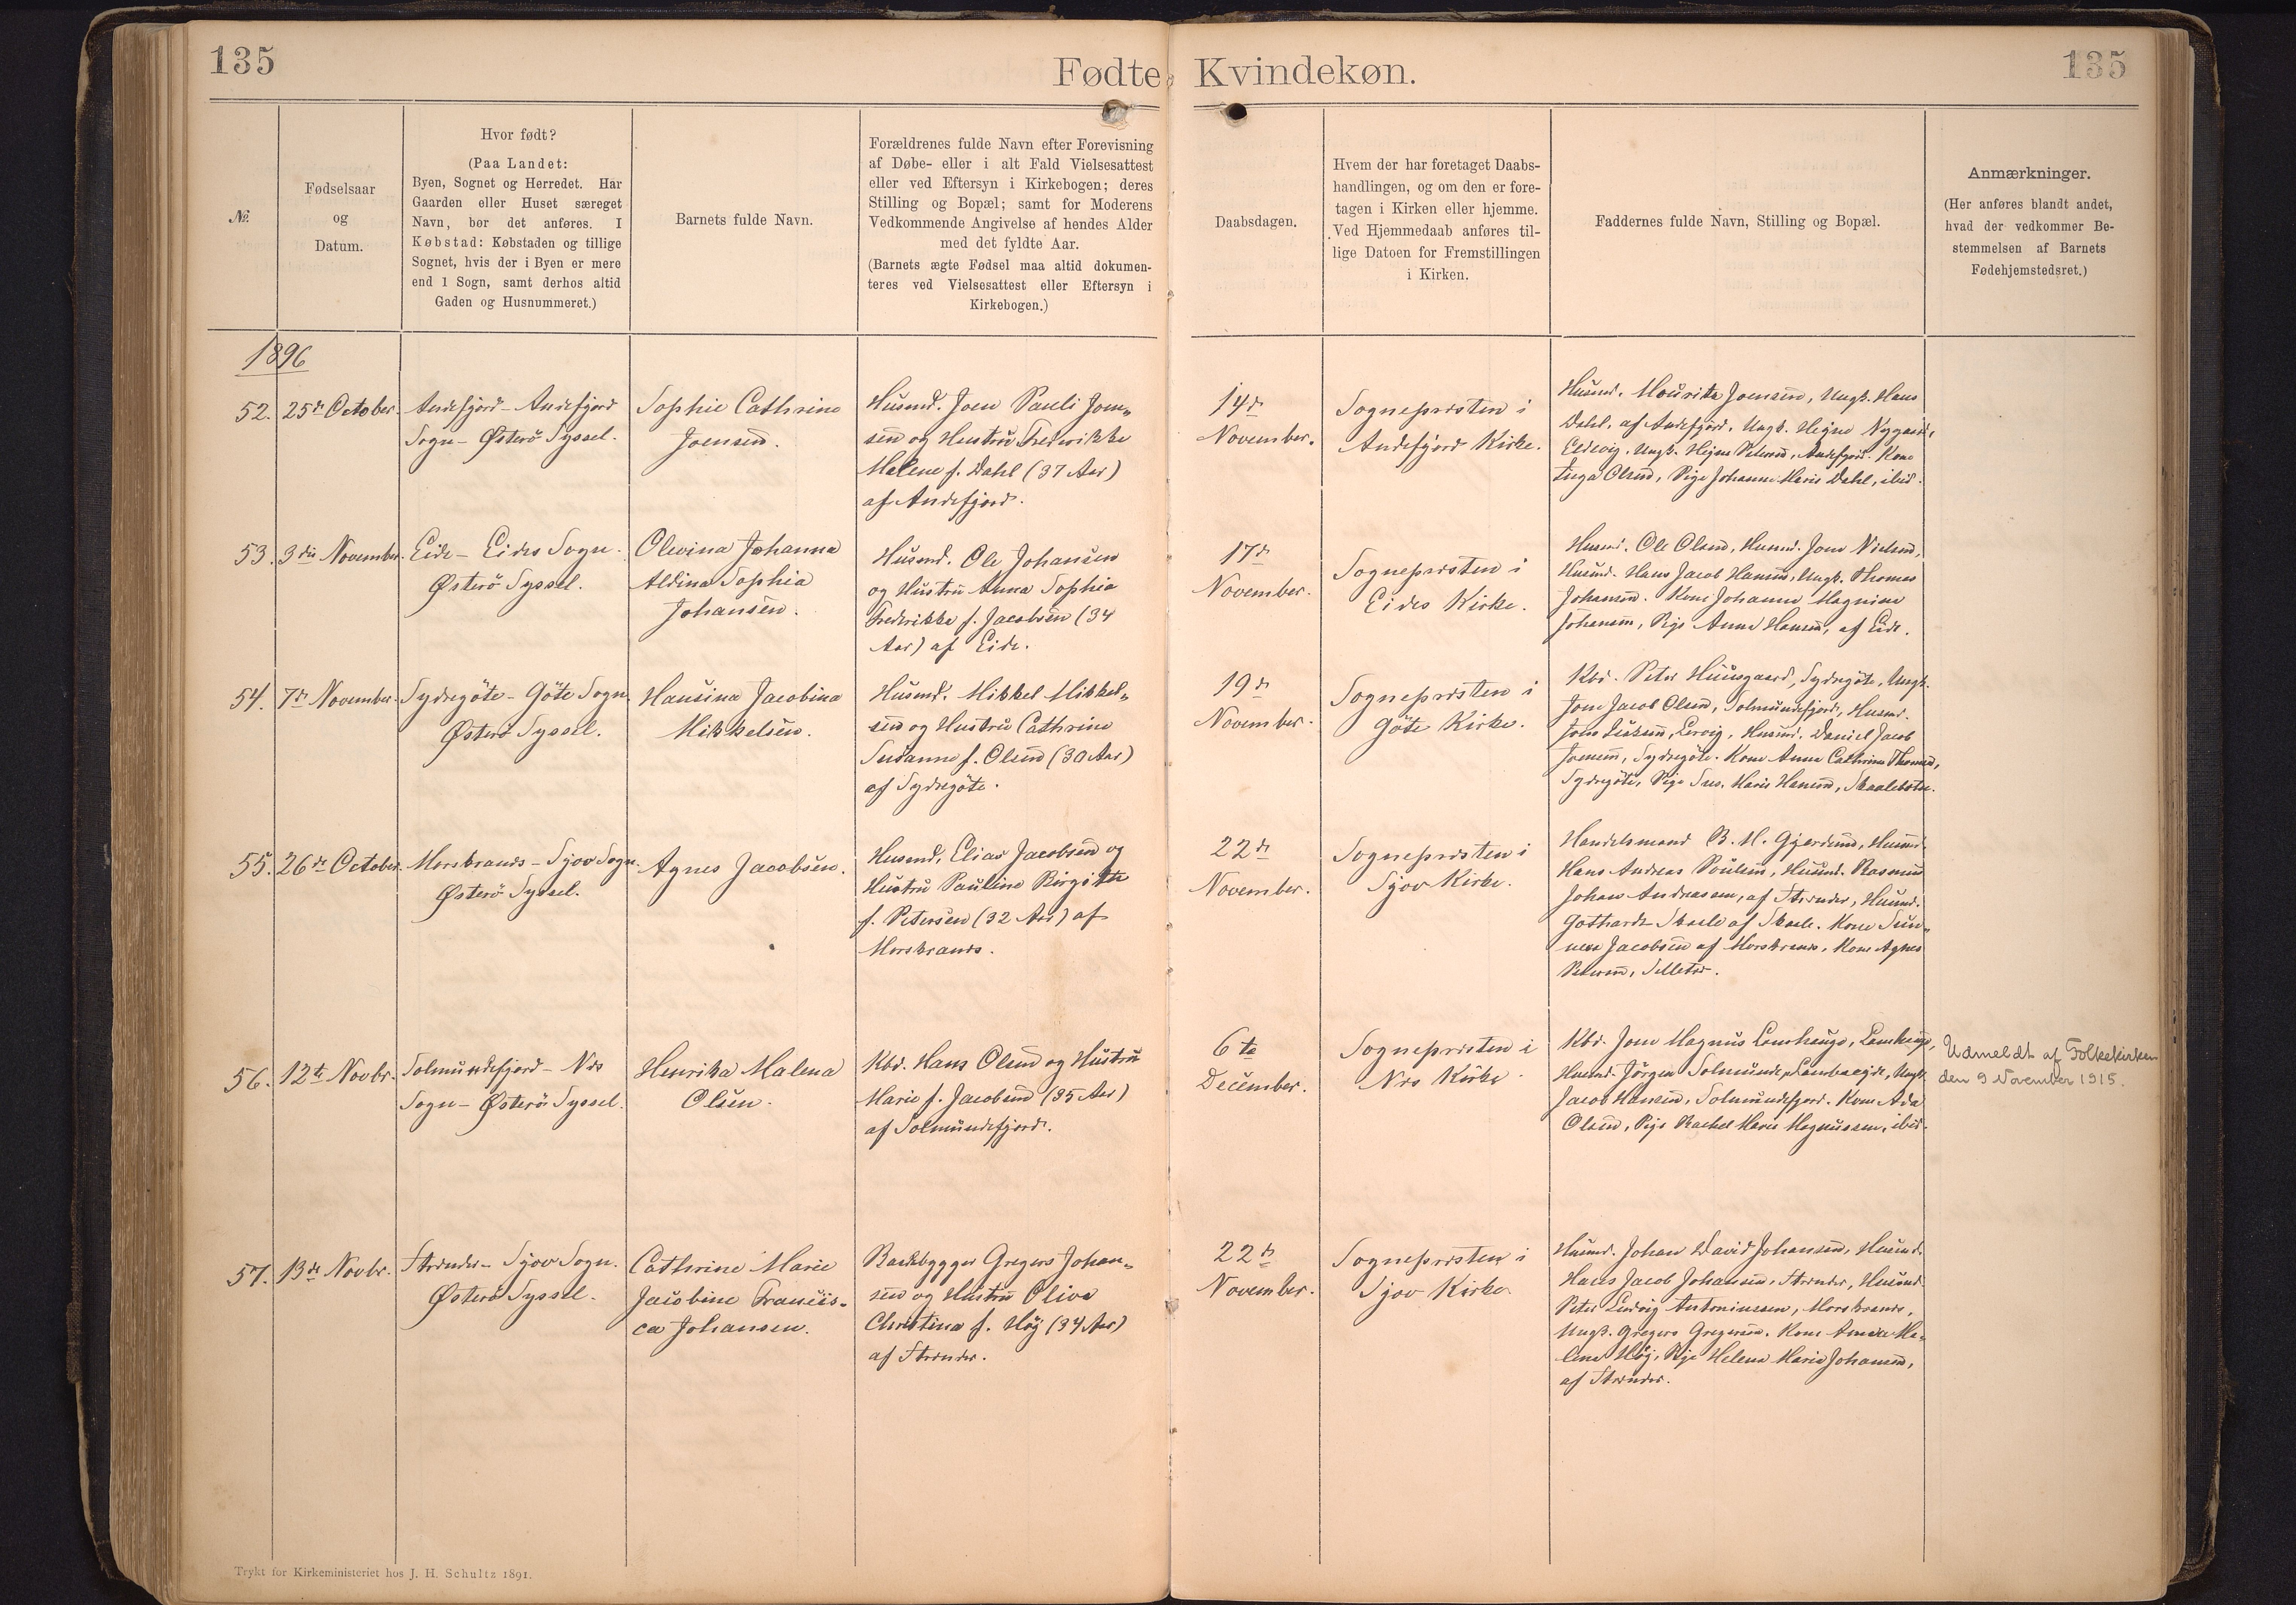 135
Fødte Kvindekøn.
135
№
Fødselsaar
og
Datum.
Hvor født?
(Paa Landet:
Byen, Sognet og Herredet. Har
Gaarden eller Huset særeget
Navn, bør det anføres. I
Købstad: Købstaden og tillige
Sognet, hvis der i Byen er mere
end 1 Sogn, samt derhos altid
Gaden og Husnummeret.)
Barnets fulde Navn.
Forældrenes fulde Navn efter Forevisning
af Døbe- eller i alt Fald Vielsesattest
eller ved Eftersyn i Kirkebogen; deres
Stilling og Bopæl; samt for Moderens
Vedkommende Angivelse af hendes Alder
med det fyldte Aar.
(Barnets ægte Fødsel maa altid dokumen-
teres ved Vielsesattest eller Eftersyn i
Kirkebogen.)
Daabsdagen.
Hvem der har foretaget Daabs-
handlingen, og om den er fore-
tagen i Kirken eller hjemme.
Ved Hjemmedaab anføres til-
lige Datoen for Fremstillingen
i Kirken.
Faddernes fulde Navn, Stilling og Bopæl.
Anmærkninger.
(Her anføres blandt andet,
hvad der vedkommer Be-
stemmelsen af Barnets
Fødehjemstedsret.)
1896
52.
25de October.
Andefjord - Andefjord
Sogn - Østerö Syssel.
Sophie Cathrine
Joensen.
Husmd. Joen Pauli Joen-
sen og Hustru Frederikke
Malene f. Dahl (37 Aar)
af Andefjord.
14de
November.
Sognepræsten i
Andefjord Kirke.
Husmd. Mouritz Joensen, Ungk. Hans
Dahl, af Andefjord, Ungk. Hejne Nygaard,
Eldevig, Ungk. Hejne Petersen, Andefjord. Kone
Inga Olsen, Pige Johanne Marie Dahl, ibid.
53.
3die November.
Eide - Eides Sogn.
Østerö Syssel.
Olevina Johanna
Aldina Sophia
Johansen.
Husmd. Ole Johansen
og Hustru Anna Sophia
Frederikke f. Jacobsen (34
Aar) af Eide.
17de
November.
Sognepræsten i
Eides Kirke.
Husmd. Ole Olsen, Husmd. Joen Nielsen,
Husmd. Hans Jacob Hansen, Ungk. Thomas
Johansen. Kone Johanne Magnine
Johansen, Pige Anna Hansen, af Eide.
54.
7de November.
Sydregöte - Göte Sogn.
Østerö Syssel.
Hansina Jacobina
Mikkelsen.
Husmd. Mikkel Mikkel-
sen og Hustru Cathrine
Susanne f. Olsen (30 Aar)
af Sydregöte.
19de
November.
Sognepræsten i
Göte Kirke.
Kbd. Peter Huusgaard, Sydregöte, Ungk.
Joen Jacob Olsen, Solmundefjord, Husmd.
Lervig, Husmd. Daniel Jacob
Joensen, Sydregöte. Kone Anna Cathrine Thomsen,
Sydregöte, Pige Sus. Marie Hansen, Skaalebotn.
55.
26de October.
Morskranes - Sjov Sogn.
Østerö Syssel.
Agnes Jacobsen.
Husmd. Elias Jacobsen og
Hustru Pauline Birgitte
f. Petersen (32 Aar) af
Morskranes.
22de
November.
Sognepræsten i
Sjov Kirke.
Handelsmand B. M. Gjerdum, Husmd.
Hans Andreas Poulsen, Husmd. Rasmus
Johan Andreasen, af Strender, Husmd.
Gotthardt Skaale af Skaale. Kone Sun-
neva Jacobsen af Morskranes, Kone Agnes
Petersen, Selletræ.
56.
12te Novbr.
Solmundefjord - Næs
Sogn - Østerö Syssel.
Henrika Malena
Olsen.
Kbd. Hans Olsen og Hustru
Marie f. Jacobsen (35 Aar)
af Solmundefjord.
6te
December.
Sognepræsten i
Næs Kirke.
Kbd. Joen Magnus Lamhauge, Lamhauge,
Husmd. Jörgen Solmunde, Lambareide, Ungk.
Jacob Hansen, Solmundefjord. Kone Ada
Olsen, Pige Rachel Marie Magnussen, ibid.
Udmeldt af Folkekirken
den 9 November 1915.
57.
13de Novbr.
Strender - Sjov Sogn.
Østerö Syssel.
Cathrine Marie
Jacobine Francis-
ca Johansen.
Baadebygger Gregers Johan-
sen og Hustru Olive
Christina f. Høj (34 Aar)
af Strender.
22de
November.
Sognepræsten i
Sjov Kirke.
Husmd. Johan David Johansen, Husmd.
Hans Jacob Johansen, Strender, Husmd.
Peter Ludvig Antoniussen, Morskranes,
Ungk. Gregers Gregersen. Kone Ma-
lene Høj, Pige Helena Maria Johansen,
af Strender.
Trykt for Kirkeministeriet hos J. H. Schultz 1891.